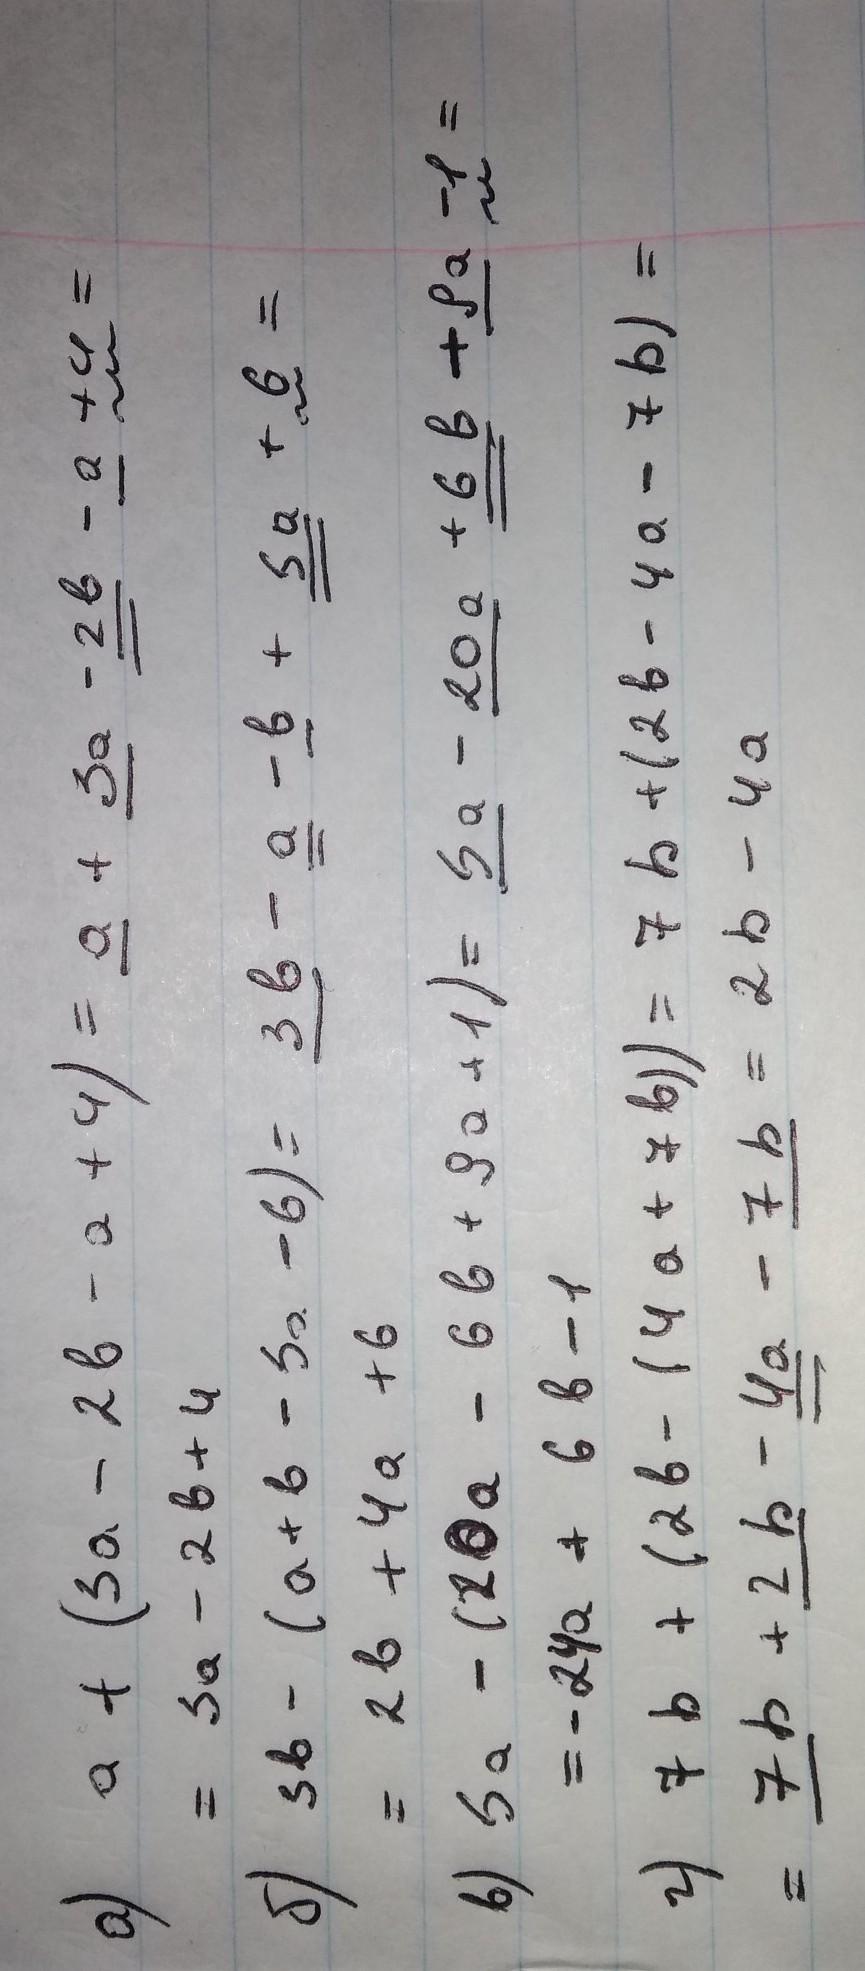 а) a + (3a - 2b - a + 4) = a + 3a - 2b - a + 4 =
= 3a - 2b + 4
б) 3b - (a + b - 5a - 6) = 3b - a - b + 5a + 6 =
= 2b + 4a + 6
в) 5a - (20a - 6b + 9a + 1) = 5a - 20a + 6b + 9a - 1 =
= -24a + 6b - 1
г) 7b + (2b - (4a + 7b)) = 7b + (2b - 4a - 7b) =
= 7b + 2b - 4a - 7b = 2b - 4a